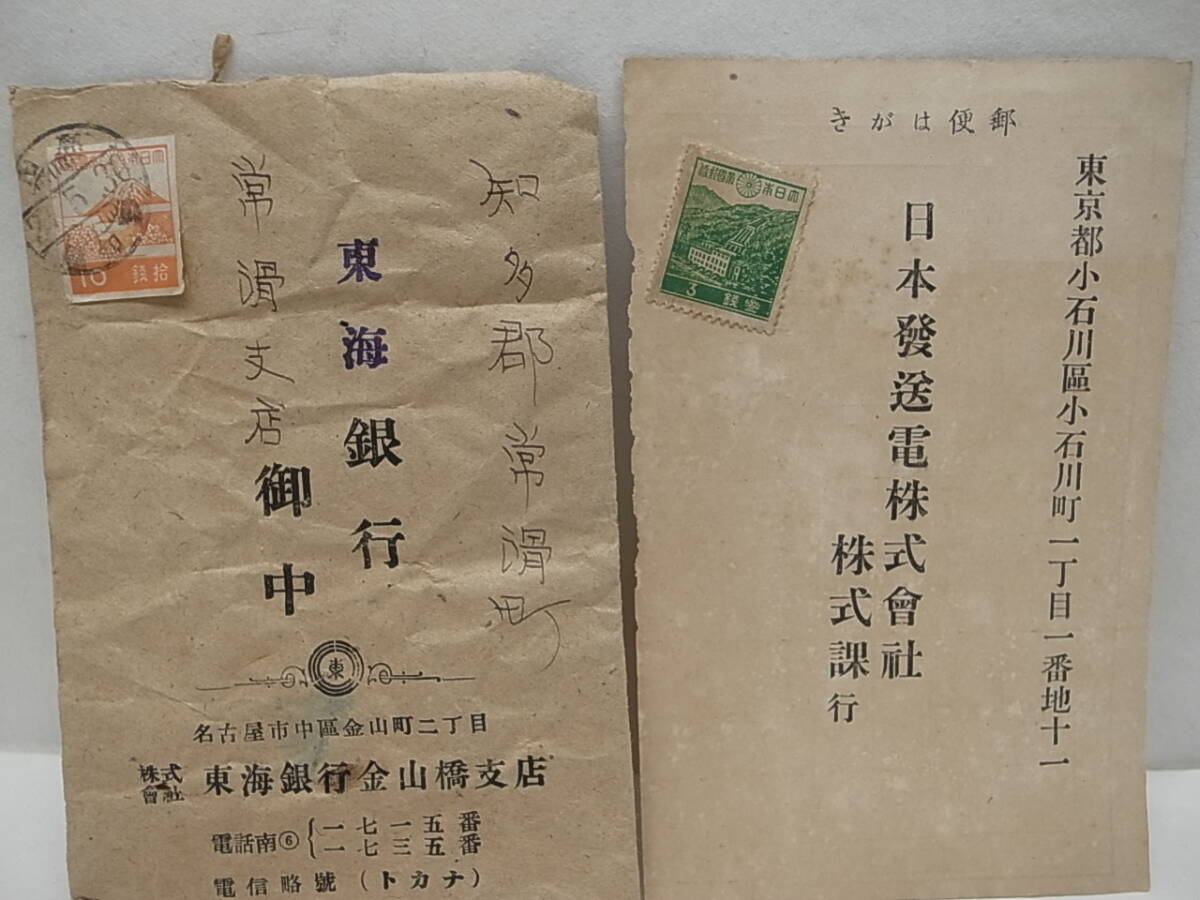 知多郡常滑町
東海銀行
常滑支店
御中
大日本帝國郵便
10
拾銭
東
名古屋市中區金山町二丁目
株式會社 東海銀行金山橋支店
電話南⑥ {一七一五番
一七三五番
電信略號 (トカナ)
郵便はがき
東京都小石川區小石川町一丁目一番地十一
日本發送電株式會社
株式課行
大日本帝國郵便
3
参銭